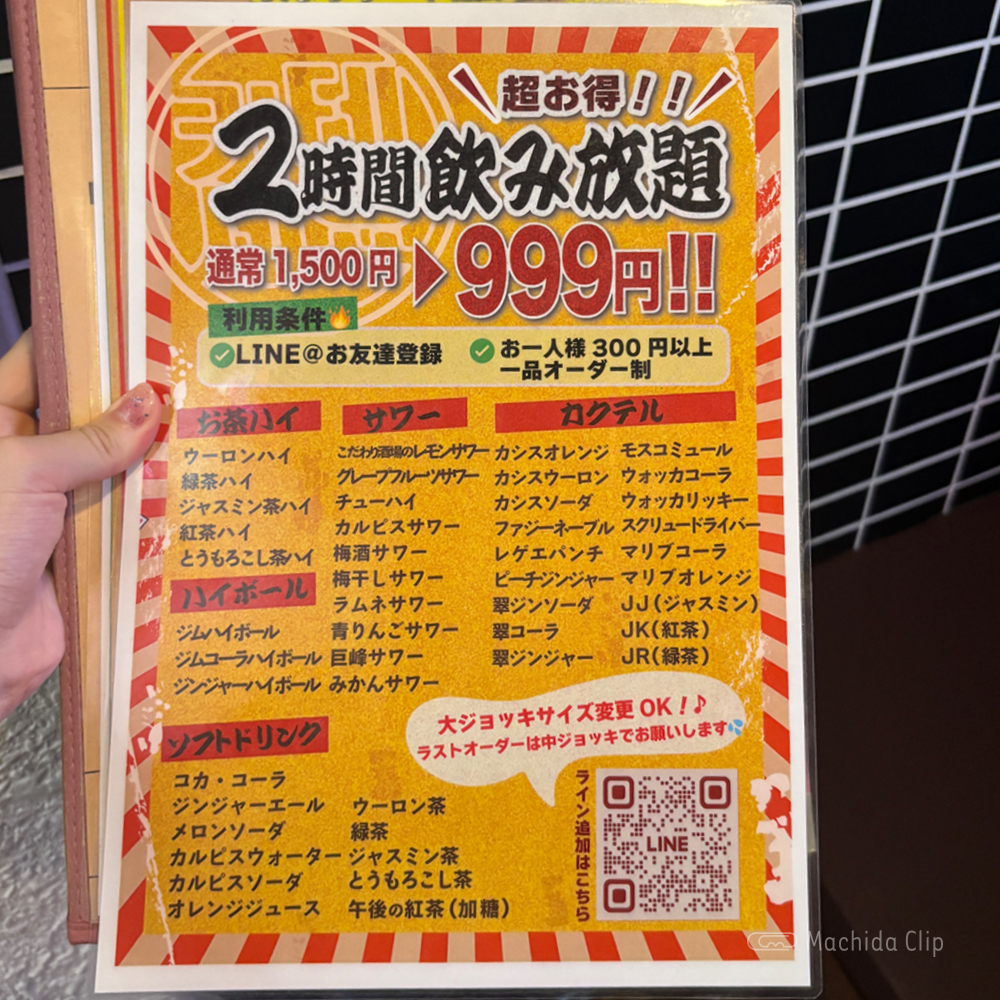 超お得！！
2時間飲み放題
通常1,500円▶999円!!
利用条件🔥
✅LINE@お友達登録
✅お一人様300円以上
一品オーダー制
お茶ハイ
ウーロンハイ
緑茶ハイ
ジャスミン茶ハイ
紅茶ハイ
とうもろこし茶ハイ
ハイボール
ジムハイボール
ジムコーラハイボール
ジンジャーハイボール
サワー
こだわり酒場のレモンサワー
グレープフルーツサワー
チューハイ
カルピスサワー
梅酒サワー
梅干しサワー
ラムネサワー
青りんごサワー
巨峰サワー
みかんサワー
カクテル
カシスオレンジ
カシスウーロン
カシスソーダ
ファジーネーブル
レゲエパンチ
ピーチジンジャー
翠ジンソーダ
翠コーラ
翠ジンジャー
モスコミュール
ウォッカコーラ
ウォッカリッキー
スクリュードライバー
マリブコーラ
マリブオレンジ
JJ(ジャスミン)
JK(紅茶)
JR(緑茶)
大ジョッキサイズ変更OK！♪
ラストオーダーは中ジョッキでお願いします💦
ソフトドリンク
コカ・コーラ
ジンジャーエール
メロンソーダ
カルピスウォーター
カルピスソーダ
オレンジジュース
ウーロン茶
緑茶
ジャスミン茶
とうもろこし茶
午後の紅茶(加糖)
ライン追加はこちら
LINE
Machida Clip